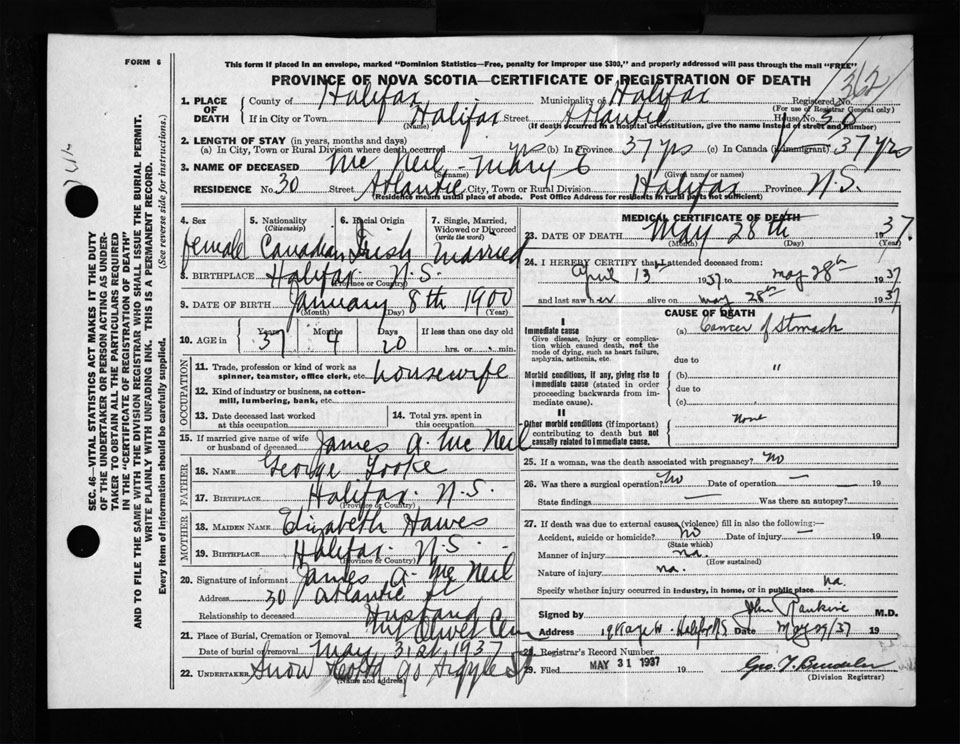 FORM 6
This form if placed in an envelope, marked "Dominion Statistics—Free, penalty for improper use $300," and properly addressed will pass through the mail "FREE"
PROVINCE OF NOVA SCOTIA—CERTIFICATE OF REGISTRATION OF DEATH
312
1. PLACE OF DEATH County of Halifax Municipality of Halifax Registered No.
(For use of Registrar General only)
If in City or Town Halifax Street Atlantic House No. 30
(Name) (If death occurred in a hospital or institution, give the name instead of street and number)
2. LENGTH OF STAY (in years, months and days)
(a) In City, Town or Rural Division where death occurred yrs (b) In Province 37 yrs (c) In Canada (if immigrant) 37 yrs
3. NAME OF DECEASED Mc Neil Mary E
(Surname) (Given name or names)
RESIDENCE No. 30 Street Atlantic City, Town or Rural Division Halifax Province N.S.
(Residence means usual place of abode. Post Office Address for residents in rural parts not sufficient)
4. Sex 5. Nationality (Citizenship) 6. Racial Origin 7. Single, Married, Widowed or Divorced (write the word)
female Canadian Irish married
8. BIRTHPLACE Halifax N.S.
(Province or Country)
9. DATE OF BIRTH January 8th 1900
(Month) (Day) (Year)
10. AGE in Years Months Days If less than one day old
37 4 20 hrs. or min.
OCCUPATION
11. Trade, profession or kind of work as spinner, teamster, office clerk, etc. housewife
12. Kind of industry or business, as cotton-mill, lumbering, bank, etc.
13. Date deceased last worked at this occupation 14. Total yrs. spent in this occupation
15. If married give name of wife or husband of deceased James A. Mc Neil
FATHER
16. NAME George
17. BIRTHPLACE Halifax N.S.
(Province or Country)
MOTHER
18. MAIDEN NAME Elizabeth Hawes
19. BIRTHPLACE Halifax N.S.
(Province or Country)
20. Signature of informant James A. Mc Neil
Address 30 Atlantic St
Relationship to deceased Husband
21. Place of Burial, Cremation or Removal Mt Olivet Cem
Date of burial or removal May 31st 1937
22. UNDERTAKER Snow 90 Argyle St
(Name and address)
MEDICAL CERTIFICATE OF DEATH
23. DATE OF DEATH May 28th 1937.
(Month) (Day) (Year)
24. I HEREBY CERTIFY that I attended deceased from:
April 13th 1937 to May 28th 1937
and last saw her alive on May 28th 1937
CAUSE OF DEATH
I
Immediate cause (a) Cancer of Stomach
Give disease, injury or complication which caused death, not the mode of dying, such as heart failure, asphyxia, asthenia, etc.
due to
Morbid conditions, if any, giving rise to immediate cause (stated in order proceeding backwards from immediate cause).
(b) "
due to
(c)
II
Other morbid conditions (if important) contributing to death but not causally related to immediate cause. None
25. If a woman, was the death associated with pregnancy? No
26. Was there a surgical operation? No Date of operation — 19
State findings — Was there an autopsy?
27. If death was due to external causes (violence) fill in also the following:—
Accident, suicide or homicide? No Date of injury — 19
(State which)
Manner of injury na.
(How sustained)
Nature of injury na.
Specify whether injury occurred in industry, in home, or in public place. na.
Signed by John Rankine M.D.
Address Halifax N.S. Date May 29/37 19
28. Registrar's Record Number
29. Filed MAY 31 1937 19
(Division Registrar)
SEC. 46—VITAL STATISTICS ACT MAKES IT THE DUTY
OF THE UNDERTAKER OR PERSON ACTING AS UNDER-
TAKER TO OBTAIN ALL THE PARTICULARS REQUIRED
IN THE "CERTIFICATE OF REGISTRATION OF DEATH"
AND TO FILE THE SAME WITH THE DIVISION REGISTRAR WHO SHALL ISSUE THE BURIAL PERMIT.
WRITE PLAINLY WITH UNFADING INK. THIS IS A PERMANENT RECORD.
Every item of information should be carefully supplied. (See reverse side for instructions.)